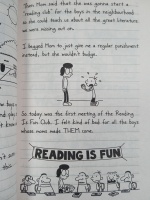 Then Mom said that she was gonna start a
"reading club" for the boys in the neighborhood
so she could teach us about all the great literature
we were missing out on.
I begged Mom to just give me a regular punishment
instead, but she wouldn't budge.
So today was the first meeting of the Reading
Is Fun Club. I felt kind of bad for all the boys
whose moms made THEM come.
READING IS FUN